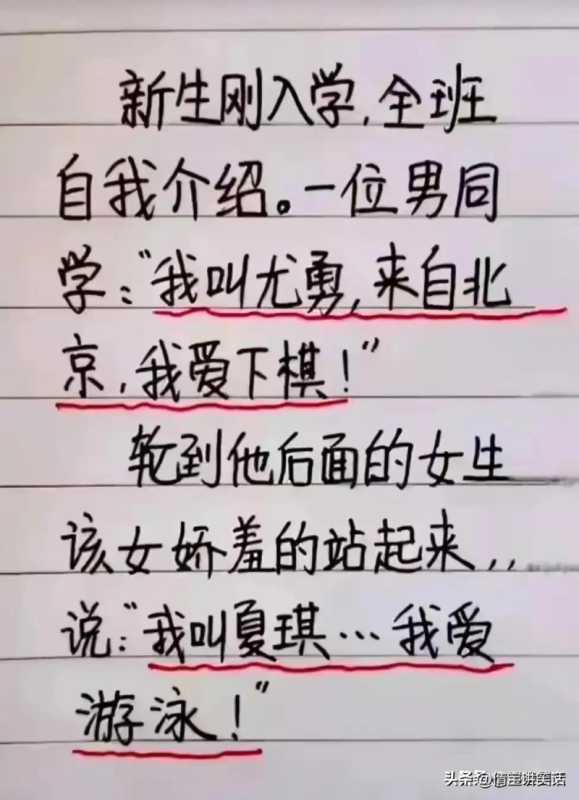 新生刚入学,全班
自我介绍。一位男同
学:“我叫尤勇,来自北
京,我爱下棋!”
轮到他后面的女生
该女娇羞的站起来,,
说:“我叫夏琪…我爱
游泳!”
头条@倩